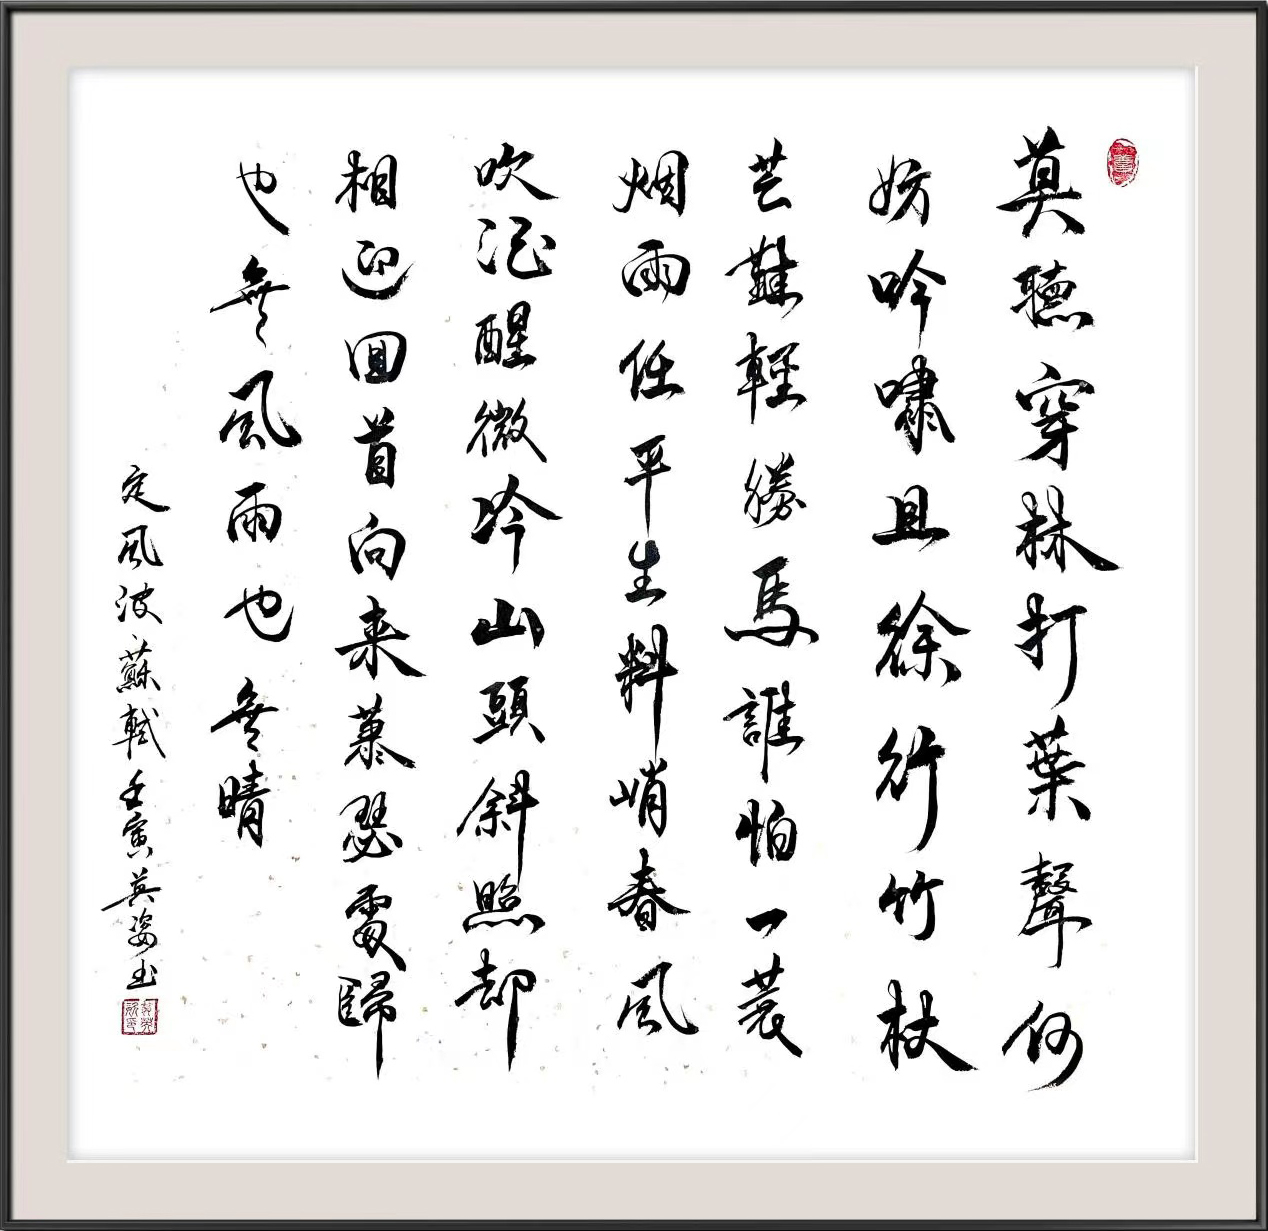 莫聽穿林打葉聲何
妨吟嘯且徐行竹杖
芒鞋輕勝馬誰怕一蓑
烟雨任平生料峭春風
吹酒醒微冷山頭斜照却
相迎回首向来蕭瑟處歸
也無風雨也無晴
定風波蘇軾壬寅英姿书